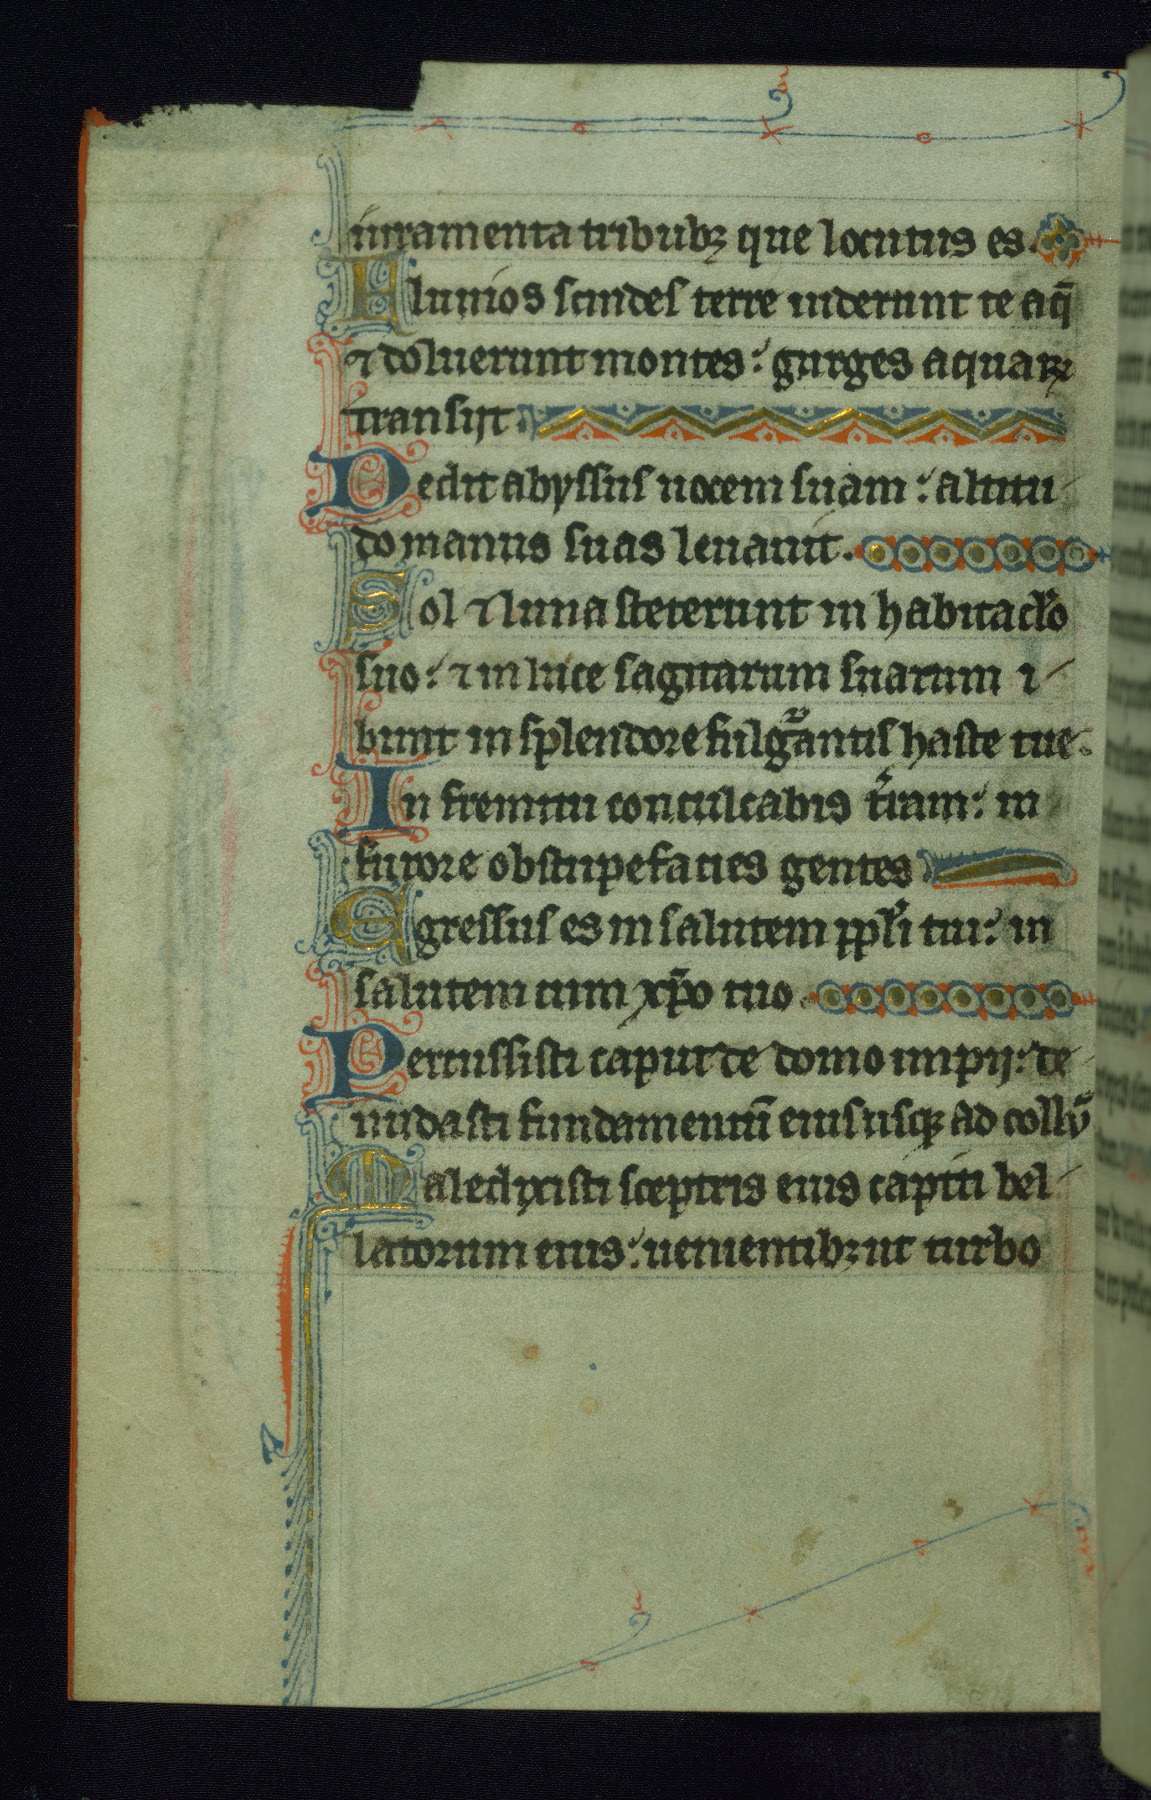 iuramenta tribubꝫ que locutus es.
Fluuios scindes terre uiderunt te aq̄
⁊ doluerunt montes: gurges aquaꝝ
transiit.
Dedit abyssus uocem suam: altitu
do manus suas leuauit.
Sol ⁊ luna steterunt in habitaclo
suo: ⁊ in luce sagittarum suarum i
bunt in splendore fulgᷓantis haste tue.
In fremitu conculcabis t̾ram: in
furore obstupefacies gentes
Egressus es in salutem ppl̓i tui: in
salutem cum xp̄o tuo.
Percussisti caput de domo impij: de
nudasti fundamentū eius usqꝫ ad collū
Maledixisti sceptris eius capiti bel
latorum eius: uenientibꝫ ut turbo